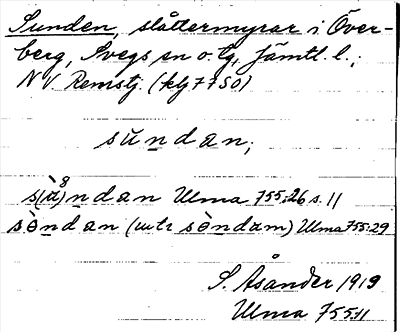 Sunden, slåttermyrar i Över-
berg, Svegs sn o. tg, Jämtl. l.;
NV Remstj. (klg 7750)
sùndan,
s(ù)ndan Ulma 755:26 s. 11
sòndan (uttr sòndam) Ulma 755:29
S. Åsander 1919
Ulma 755:11